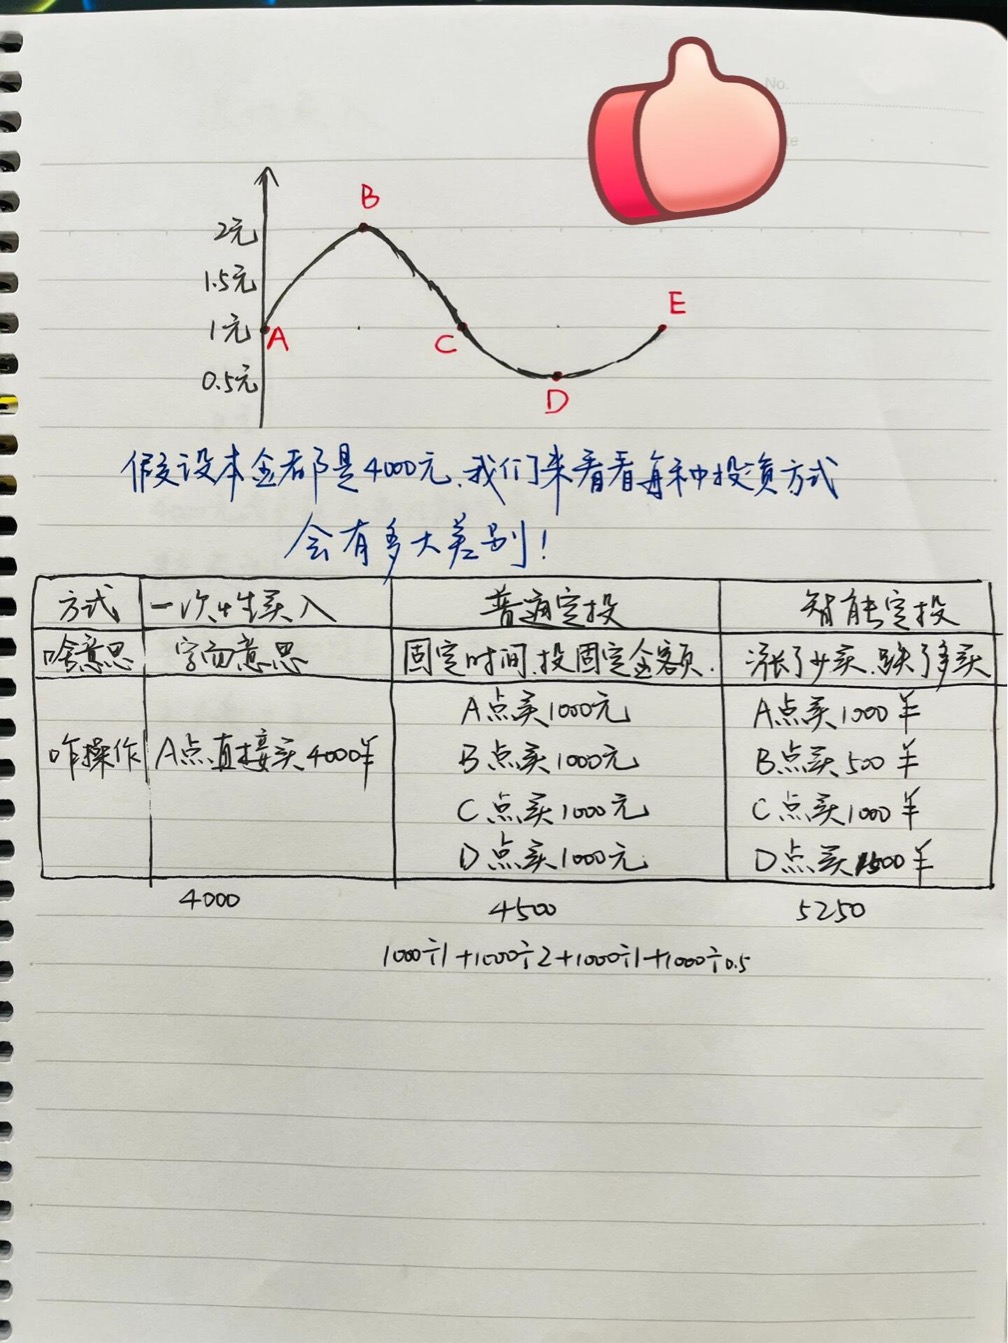 No.
B
2元
1.5元
E
1元
A
C
0.5元
D
假设本金都是4000元、我们来看看每种投资方式
会有多大差别！
方式 一次性买入 普通定投 智能定投
啥意思 字面意思 固定时间、投固定金额. 涨了少买、跌了多买
咋操作 A点直接买4000羊 A点买1000元 A点买1000羊
B点买1000元 B点买500羊
C点买1000元 C点买1000羊
D点买1000元 D点买1500羊
4000 4500 5250
1000÷1+1000÷2+1000÷1+1000÷0.5